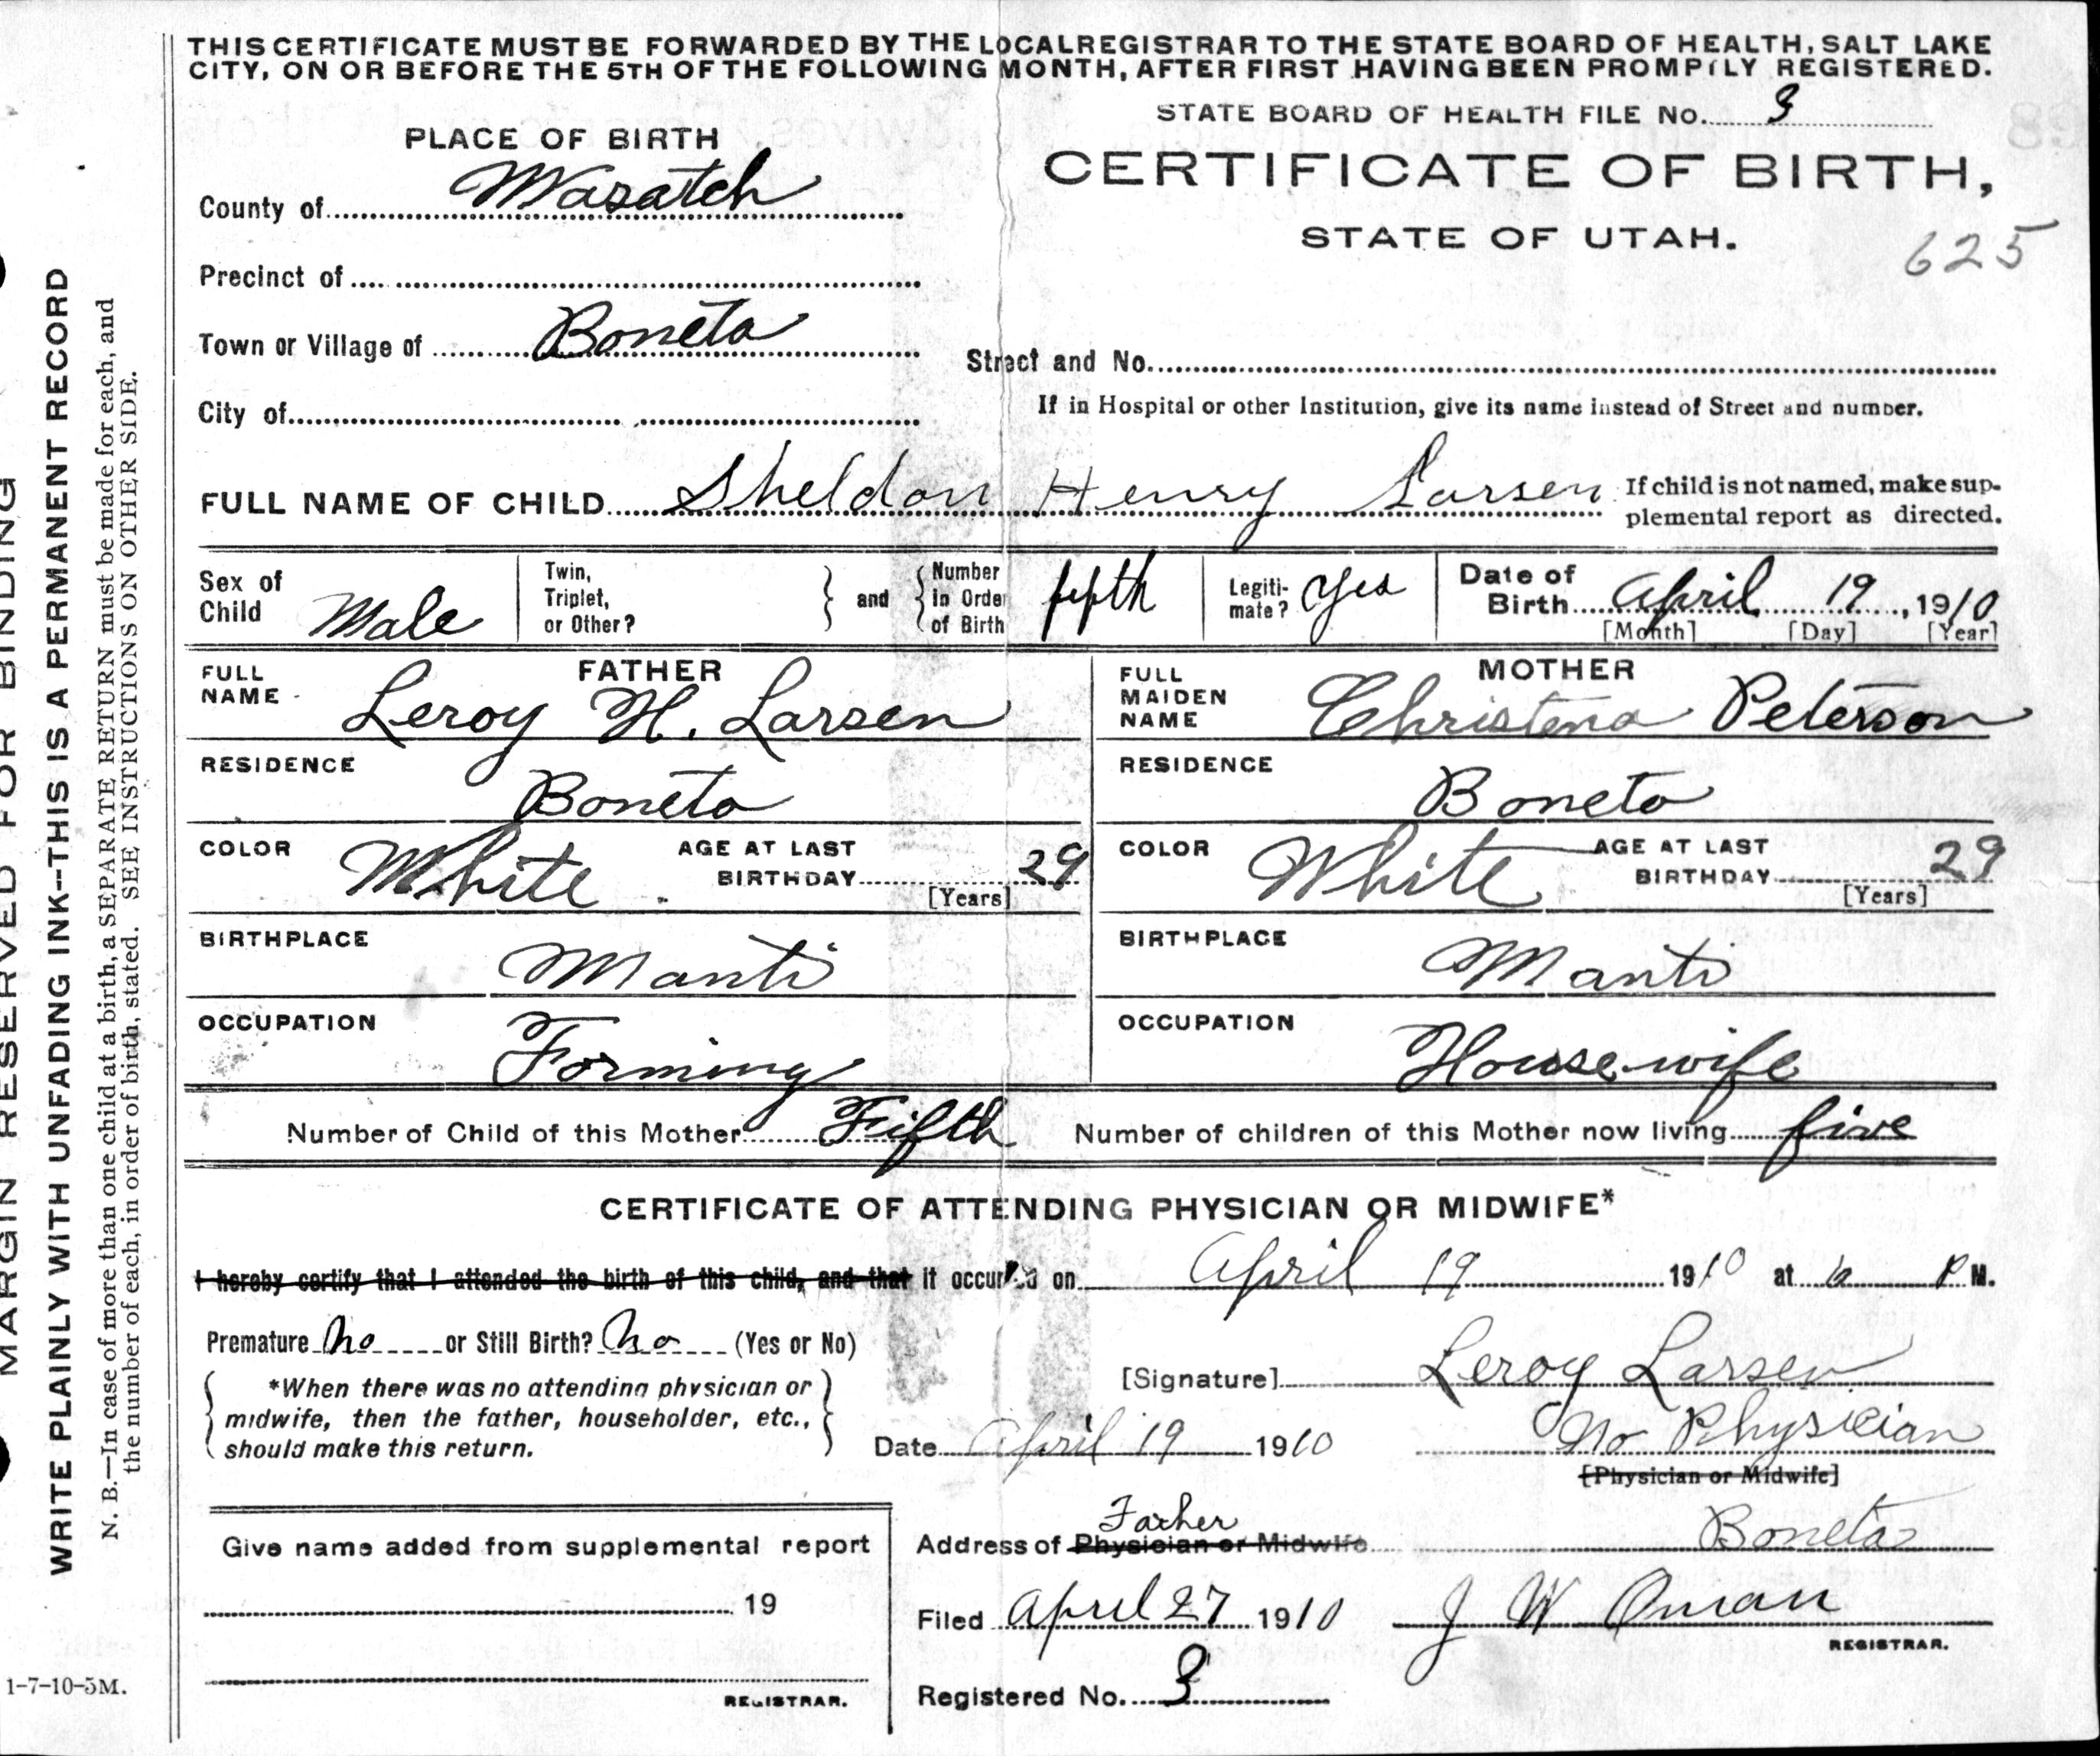 THIS CERTIFICATE MUST BE FORWARDED BY THE LOCAL REGISTRAR TO THE STATE BOARD OF HEALTH, SALT LAKE
CITY, ON OR BEFORE THE 5TH OF THE FOLLOWING MONTH, AFTER FIRST HAVING BEEN PROMPTLY REGISTERED.
STATE BOARD OF HEALTH FILE No. 3
PLACE OF BIRTH
CERTIFICATE OF BIRTH,
STATE OF UTAH.
625
County of Wasatch
Precinct of
Town or Village of Boneta
Street and No.
City of
If in Hospital or other Institution, give its name instead of Street and number.
FULL NAME OF CHILD Sheldon Henry Larsen
If child is not named, make sup-
plemental report as directed.
Sex of Child Male
Twin, Triplet, or Other?
and
Number in Order of Birth fifth
Legiti-mate? Yes
Date of Birth April 19, 1910
[Month] [Day] [Year]
FATHER
FULL NAME Leroy H. Larsen
RESIDENCE Boneta
COLOR White
AGE AT LAST BIRTHDAY 29
[Years]
BIRTHPLACE Manti
OCCUPATION Farming
MOTHER
FULL MAIDEN NAME Christena Peterson
RESIDENCE Boneta
COLOR White
AGE AT LAST BIRTHDAY 29
[Years]
BIRTHPLACE Manti
OCCUPATION Housewife
Number of Child of this Mother Fifth Number of children of this Mother now living five
CERTIFICATE OF ATTENDING PHYSICIAN OR MIDWIFE*
I hereby certify that I attended the birth of this child, and that it occurred on April 19 1910 at P M.
Premature No or Still Birth? No (Yes or No)
*When there was no attending physician or
midwife, then the father, householder, etc.,
should make this return.
[Signature] Leroy Larsen
Date April 19 1910
No Physician
[Physician or Midwife]
Give name added from supplemental report
19
REGISTRAR.
Father
Address of Physician or Midwife Boneta
Filed April 27 1910 J W Oman
REGISTRAR.
Registered No. 3
MARGIN RESERVED FOR BINDING
WRITE PLAINLY WITH UNFADING INK--THIS IS A PERMANENT RECORD
N. B.—In case of more than one child at a birth, a SEPARATE RETURN must be made for each, and
the number of each, in order of birth, stated. SEE INSTRUCTIONS ON OTHER SIDE.
1-7-10-5M.